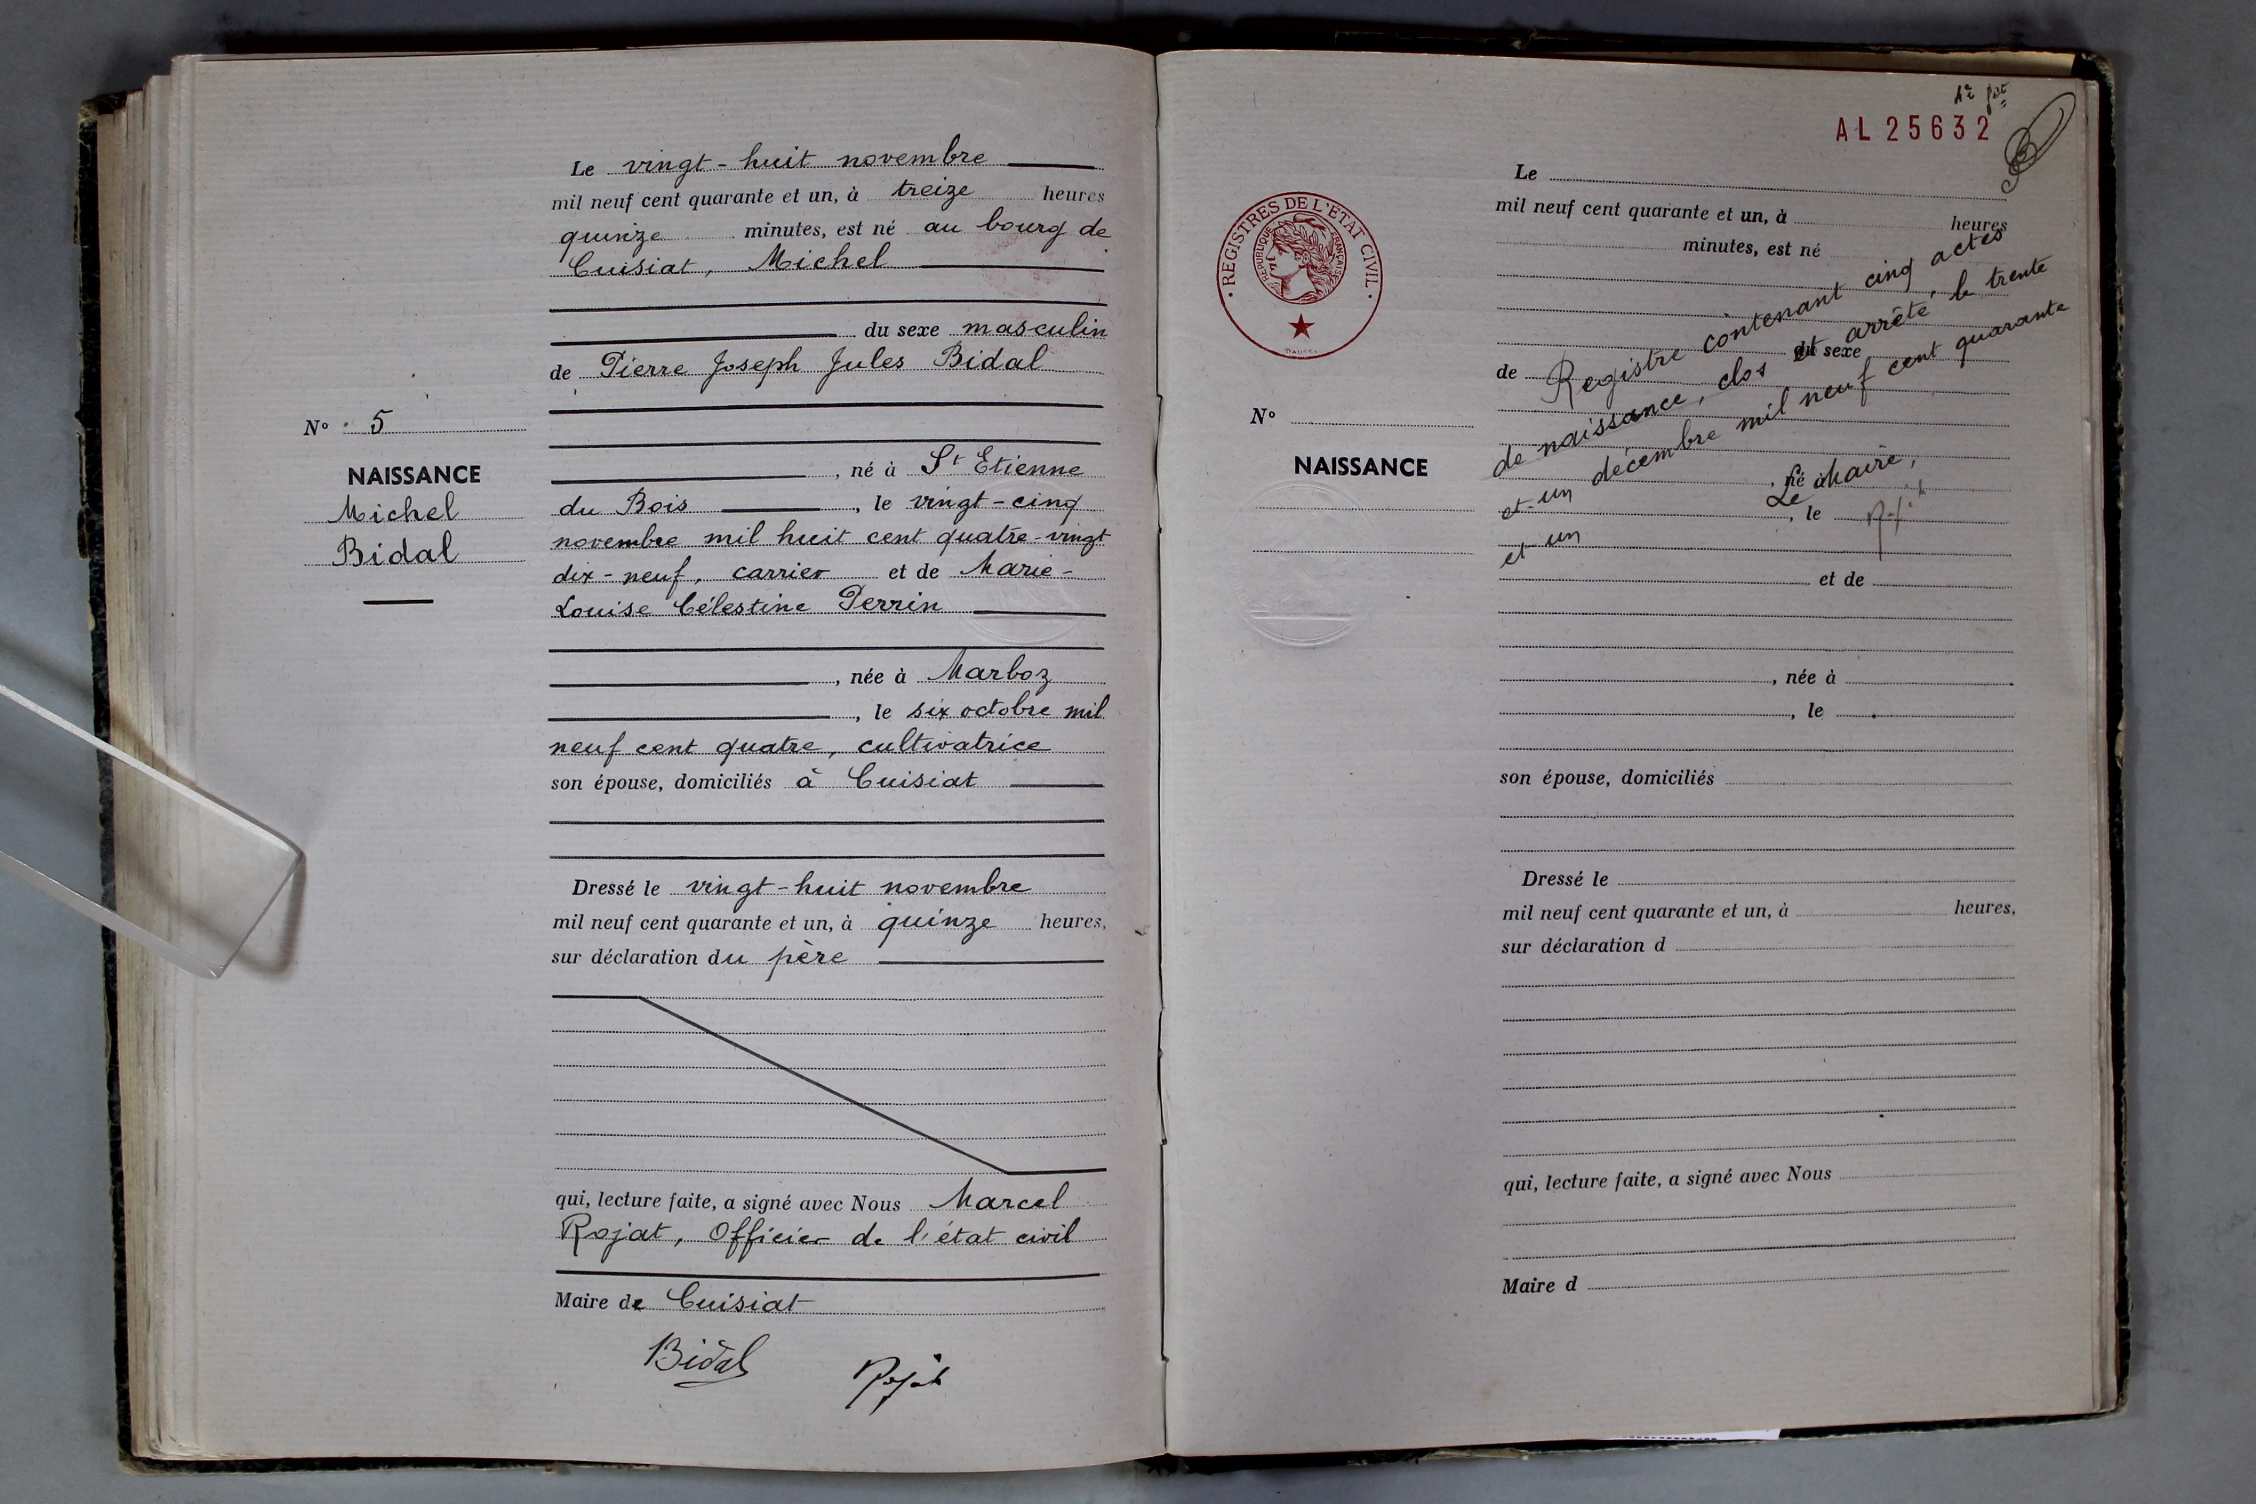 Le vingt-huit novembre
mil neuf cent quarante et un, à treize heures
quinze minutes, est né au bourg de
Cuisiat, Michel
du sexe masculin
de Pierre Joseph Jules Bidal
, né à St Etienne
du Bois, le vingt-cinq
novembre mil huit cent quatre-vingt
dix-neuf, carrier et de Marie-
Louise Célestine Perrin
, née à Marboz
, le six octobre mil
neuf cent quatre, cultivatrice
son épouse, domiciliés à Cuisiat
Dressé le vingt-huit novembre
mil neuf cent quarante et un, à quinze heures,
sur déclaration du père
qui, lecture faite, a signé avec Nous Marcel
Rojat, Officier de l'état civil
Maire de Cuisiat
Bidal Rojat
N° 5
NAISSANCE
Michel
Bidal
AL 25632
REGISTRES DE L'ETAT CIVIL
REPUBLIQUE FRANÇAISE
N°
NAISSANCE
Le
mil neuf cent quarante et un, à heures
minutes, est né
du sexe
de
, né à
, le
et de
, née à
, le
son épouse, domiciliés
Dressé le
mil neuf cent quarante et un, à heures,
sur déclaration d
qui, lecture faite, a signé avec Nous
Maire d
Registre contenant cinq actes
de naissance, clos et arrêté, le trente
et un décembre mil neuf cent quarante
et un
Le Maire,
Rojat